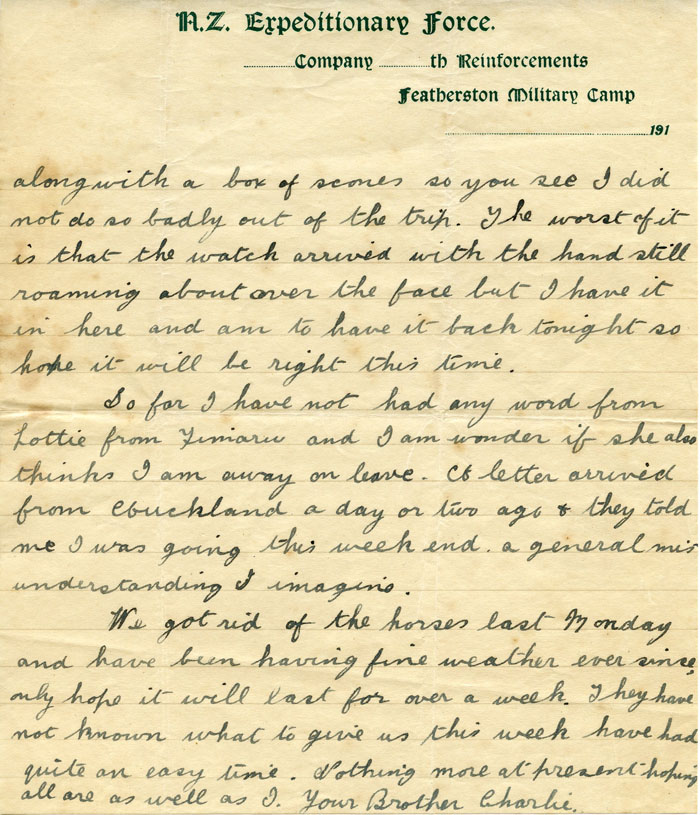 N.Z. Expeditionary Force.
..........Company ..........th Reinforcements
Featherston Military Camp
........................................191
along with a box of scones so you see I did
not do so badly out of the trip. The worst of it
is that the watch arrived with the hand still
roaming about over the face but I have it
in here and am to have it back tonight so
hope it will be right this time.
So far I have not had any word from
Lottie from Timaru and I am wonder if she also
thinks I am away on leave. A letter arrived
from Auckland a day or two ago & they told
me I was going this week end. a general mis
understanding I imagine.
We got rid of the horses last Monday
and have been having fine weather ever since,
only hope it will last for over a week. They have
not known what to give us this week have had
quite an easy time. Nothing more at present hoping
all are as well as I. Your Brother Charlie.